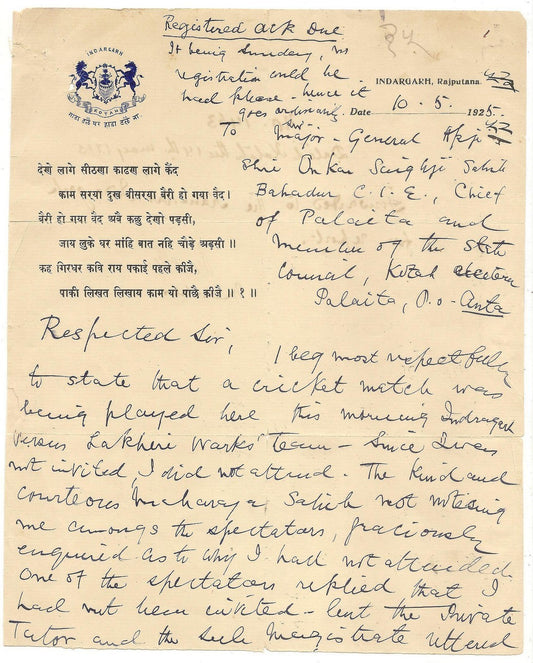 Registered Ack Due
It being Sunday, no
registration could be
had please - hence it
goes ordinarily
INDARGARH
KOTAH
INDARGARH, Rajputana.
Date 10. 5. 1925.
To
Major - General App
Shri Onkar Singhji Sahib
Bahadur C. I. E., Chief
of Palaita and
member of the State
Council, Kotah
Palaita, P.o - Anta
देणे लागे सीठणा काढण लागे कैंद
काम सरया दुख बीसरया बैरी हो गया वैद।
बैरी हो गया वैद अबै कछु देणो पड़सी,
जाय लुके घर मांहि बात नहि चौड़े अड़सी।।
कह गिरधर कवि राय पकाई पहले कीजै,
पाकी लिखत लिखाय काम यो पाछै कीजै।।१।।
Respected Sir,
I beg most respectfully
to state that a cricket match was
being played here this morning Indragarh
versus Lakheri Works' team - Since I was
not invited, I did not attend. The kind and
courteous Maharaja Sahib not noticing
me amongst the spectators, graciously
enquired as to why I had not attended.
One of the spectators replied that I
had not been invited - but the Private
Tutor and the Sub Magistrate uttered